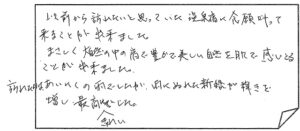 以前から訪れたいと思っていた洞爺湖に念願叶って
来ることが出来ました。
まさしく大自然の中の宿で豊かで美しい自然を肌で感じとる
ことが出来ました。
訪れた日はあいにくの雨でしたが、雨にぬれた新緑が輝きを
増し最高でした。
きれい